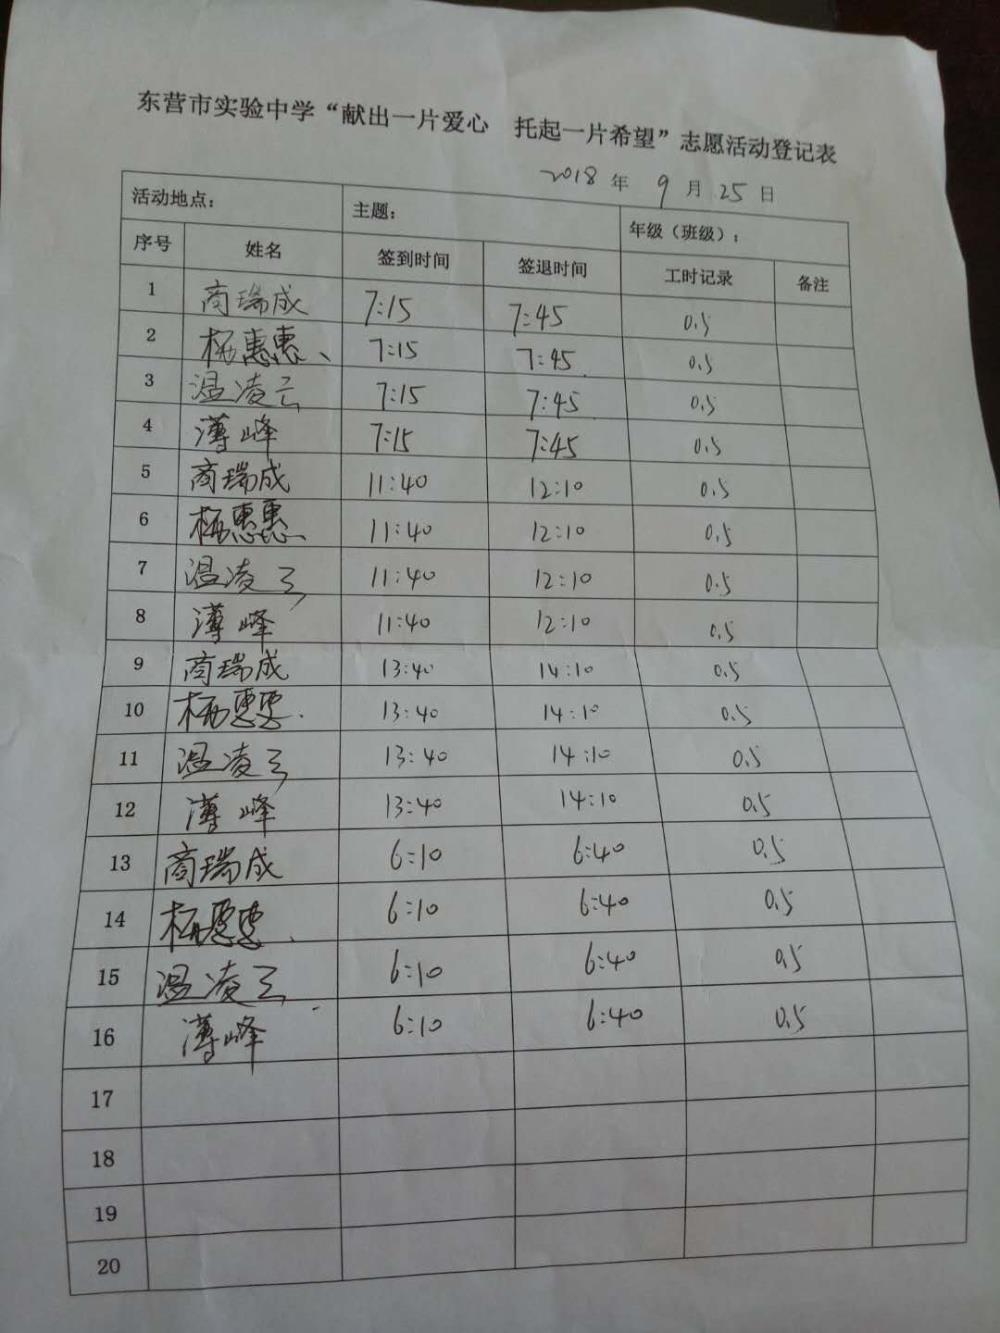 东营市实验中学“献出一片爱心 托起一片希望”志愿活动登记表
2018 年 9 月 25 日
活动地点： 主题： 年级（班级）：
序号 姓名 签到时间 签退时间 工时记录 备注
1 商瑞成 7:15 7:45 0.5
2 惠惠 7:15 7:45 0.5
3 温凌云 7:15 7:45 0.5
4 薄峰 7:15 7:45 0.5
5 商瑞成 11:40 12:10 0.5
6 惠惠 11:40 12:10 0.5
7 温凌云 11:40 12:10 0.5
8 薄峰 11:40 12:10 0.5
9 商瑞成 13:40 14:10 0.5
10 惠惠 13:40 14:10 0.5
11 温凌云 13:40 14:10 0.5
12 薄峰 13:40 14:10 0.5
13 商瑞成 6:10 6:40 0.5
14 惠惠 6:10 6:40 0.5
15 温凌云 6:10 6:40 0.5
16 薄峰 6:10 6:40 0.5
17
18
19
20